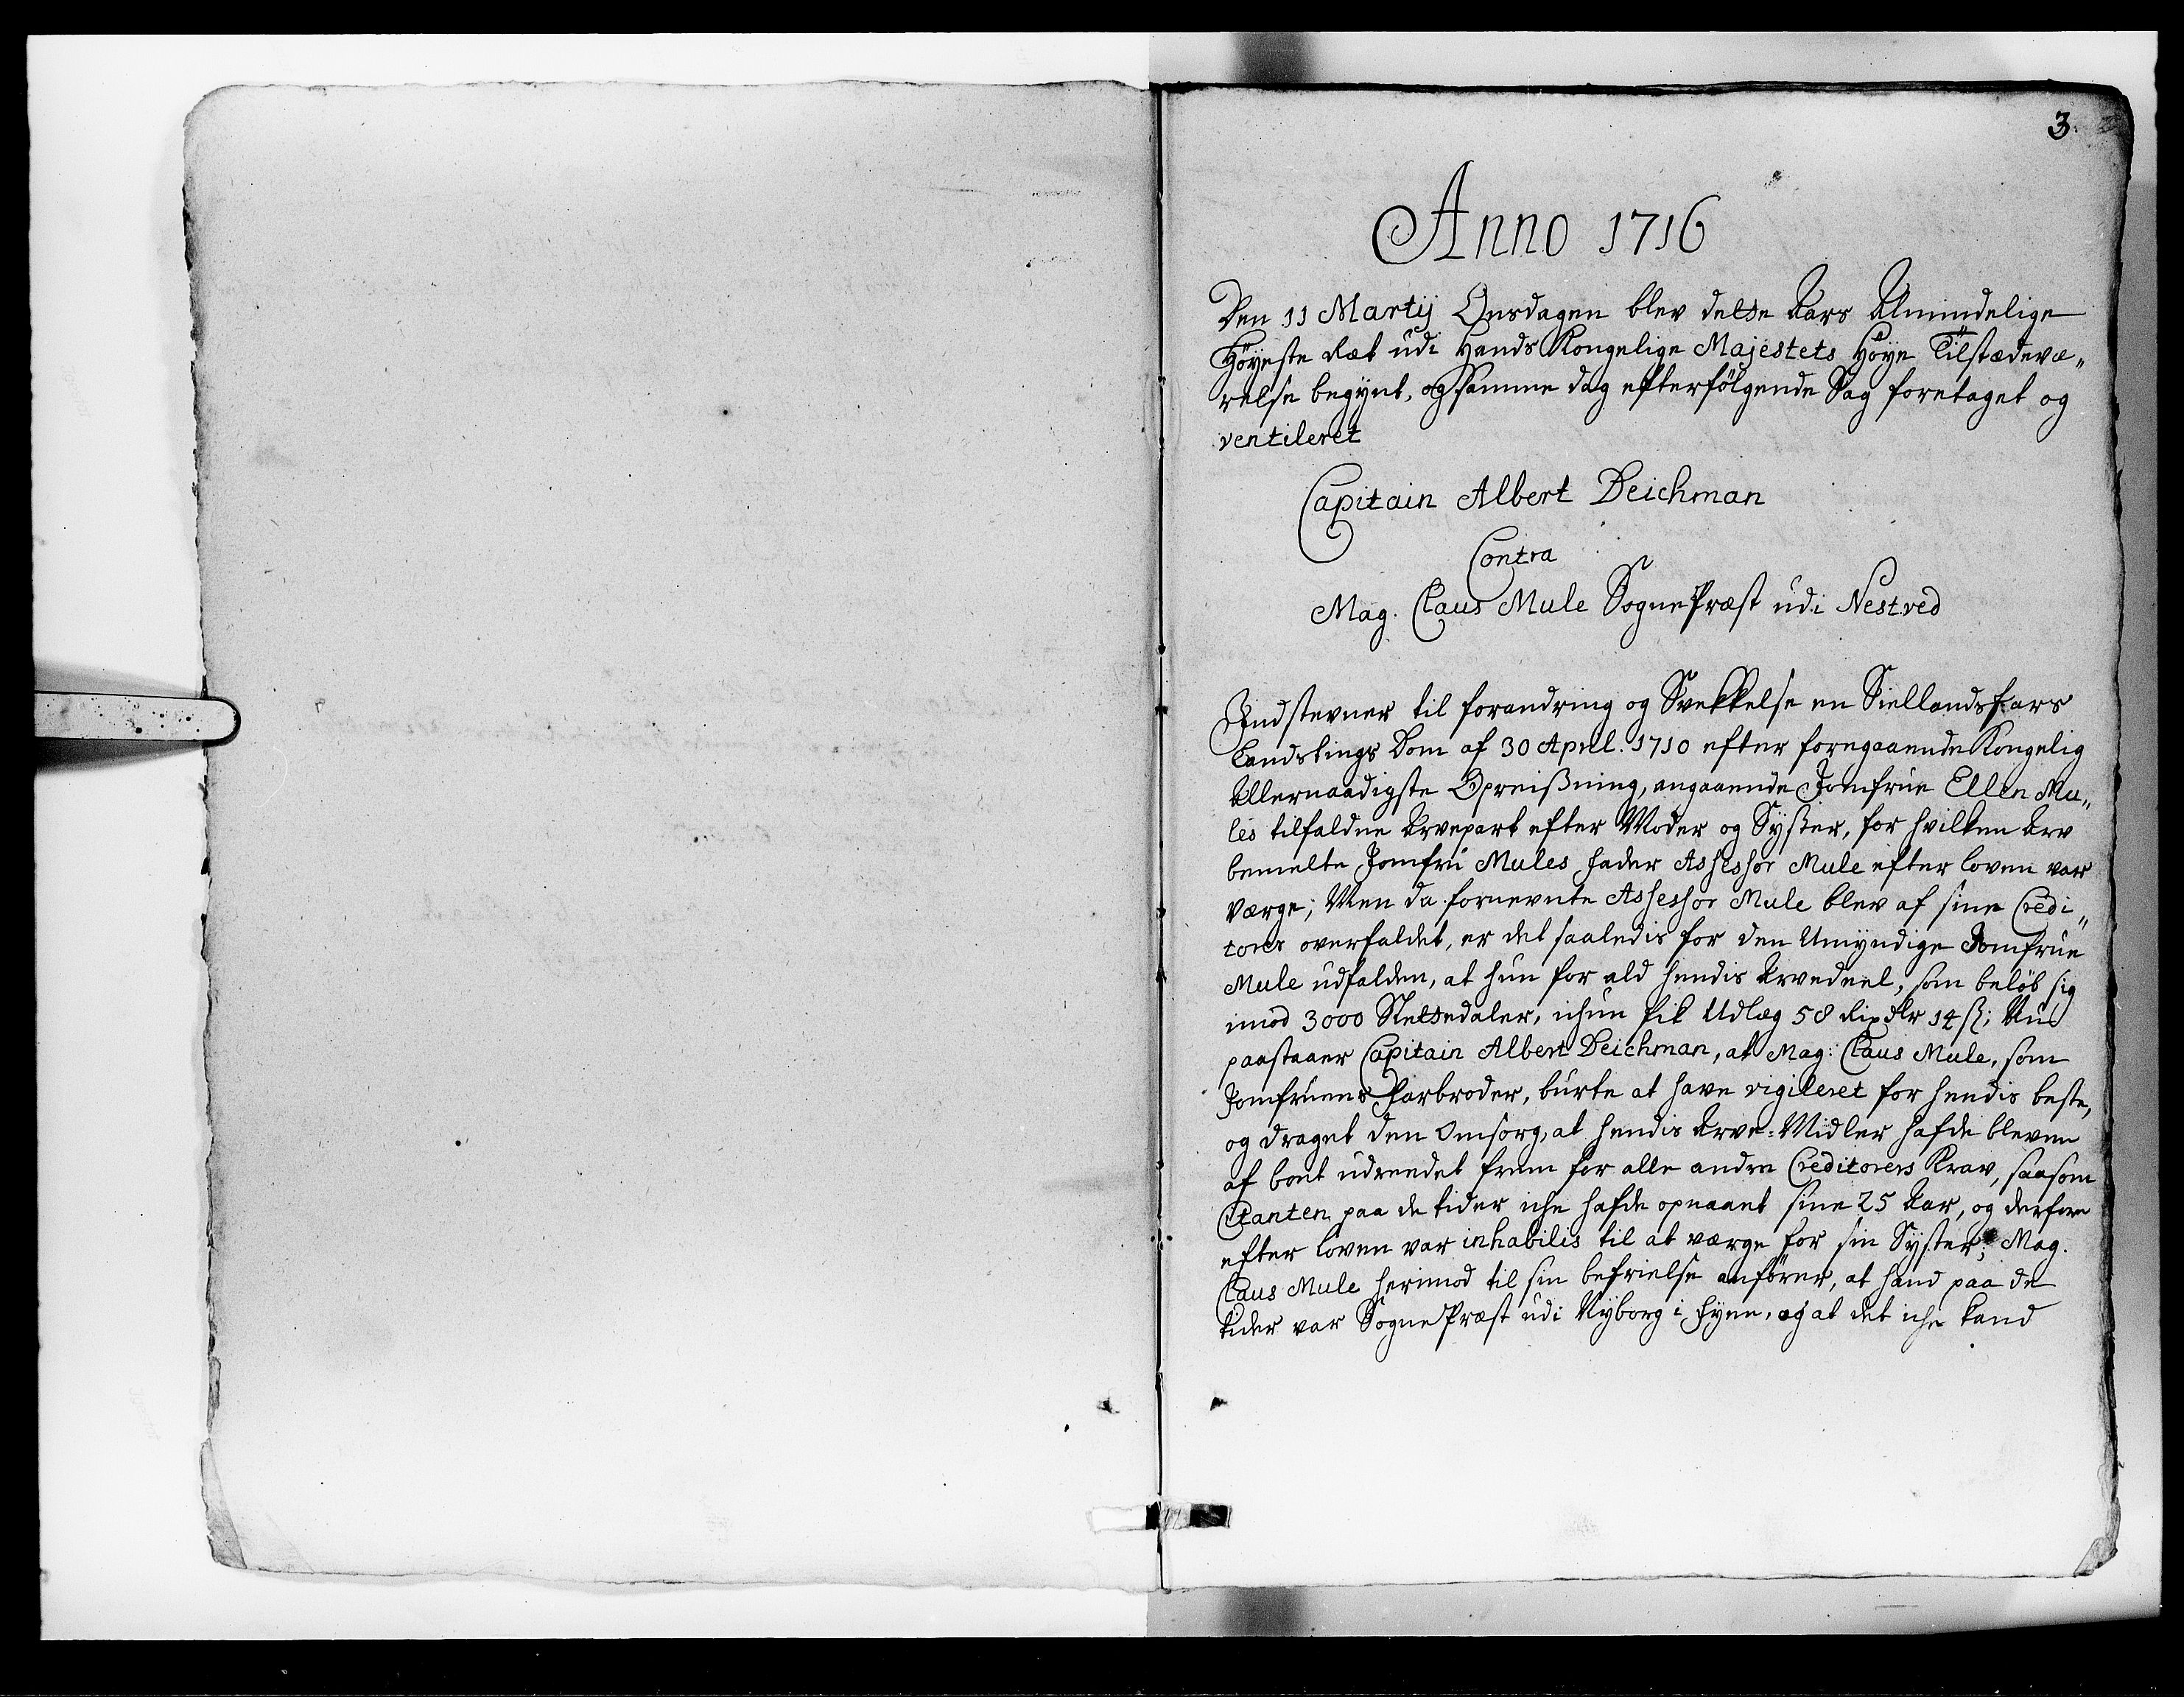 3.
Anno 1716
Den 11 Martij Onsdagen blev dette Aars Almindelige
Höyeste Ræt udi Hands Kongelige Majestets Höye Tilstædevæ„
relse begynt, og samme dag efterfölgende Sag foretaget og
ventileret
Capitain Albert Deichman
Contra
Mag. Claus Mule SognePræst udi Nestved
Indstevner til forandring og Svekkelse en Siellandsfars
Landstings Dom af 30 April. 1710 efter foregaaende Kongelig
Allernaadigste Opreisning, angaaende Jomfrue Ellen Mu„
les tilfaldne Arvepart efter Moder og Syster, for hvilken Arv
bemelte Jomfru Mules fader Assessor Mule efter loven var
Værge; Men da fornevnte Assessor Mule blev af sine Credi„
tores overfaldet, er det saaledis for den Umyndige Jomfrue
Mule udfalden, at hun for ald hendis Arvedeel, som beløb sig
imod 3000 Slettedaler, ichun fik Udlæg 58 Rixdlr 14 ß; Nu
paastaaer Capitain Albert Deichman, at Mag: Claus Mule, som
Jomfruens Farbroder, burte at have vigileret for hendis beste,
og draget den Omsorg, at hendis Arve-Midler hafde bleven
af boet udreedet frem for alle andre Creditorers Krav, saasom
Citanten paa de tider iche hafde opnaaet sine 25 Aar, og derfore
efter loven var inhabilis til at værge for sin Syster; Mag.
Claus Mule herimod til sin befrielse anförer, at hand paa de
tider var SognePræst udi Nyborg i Fyen, og at det iche kand